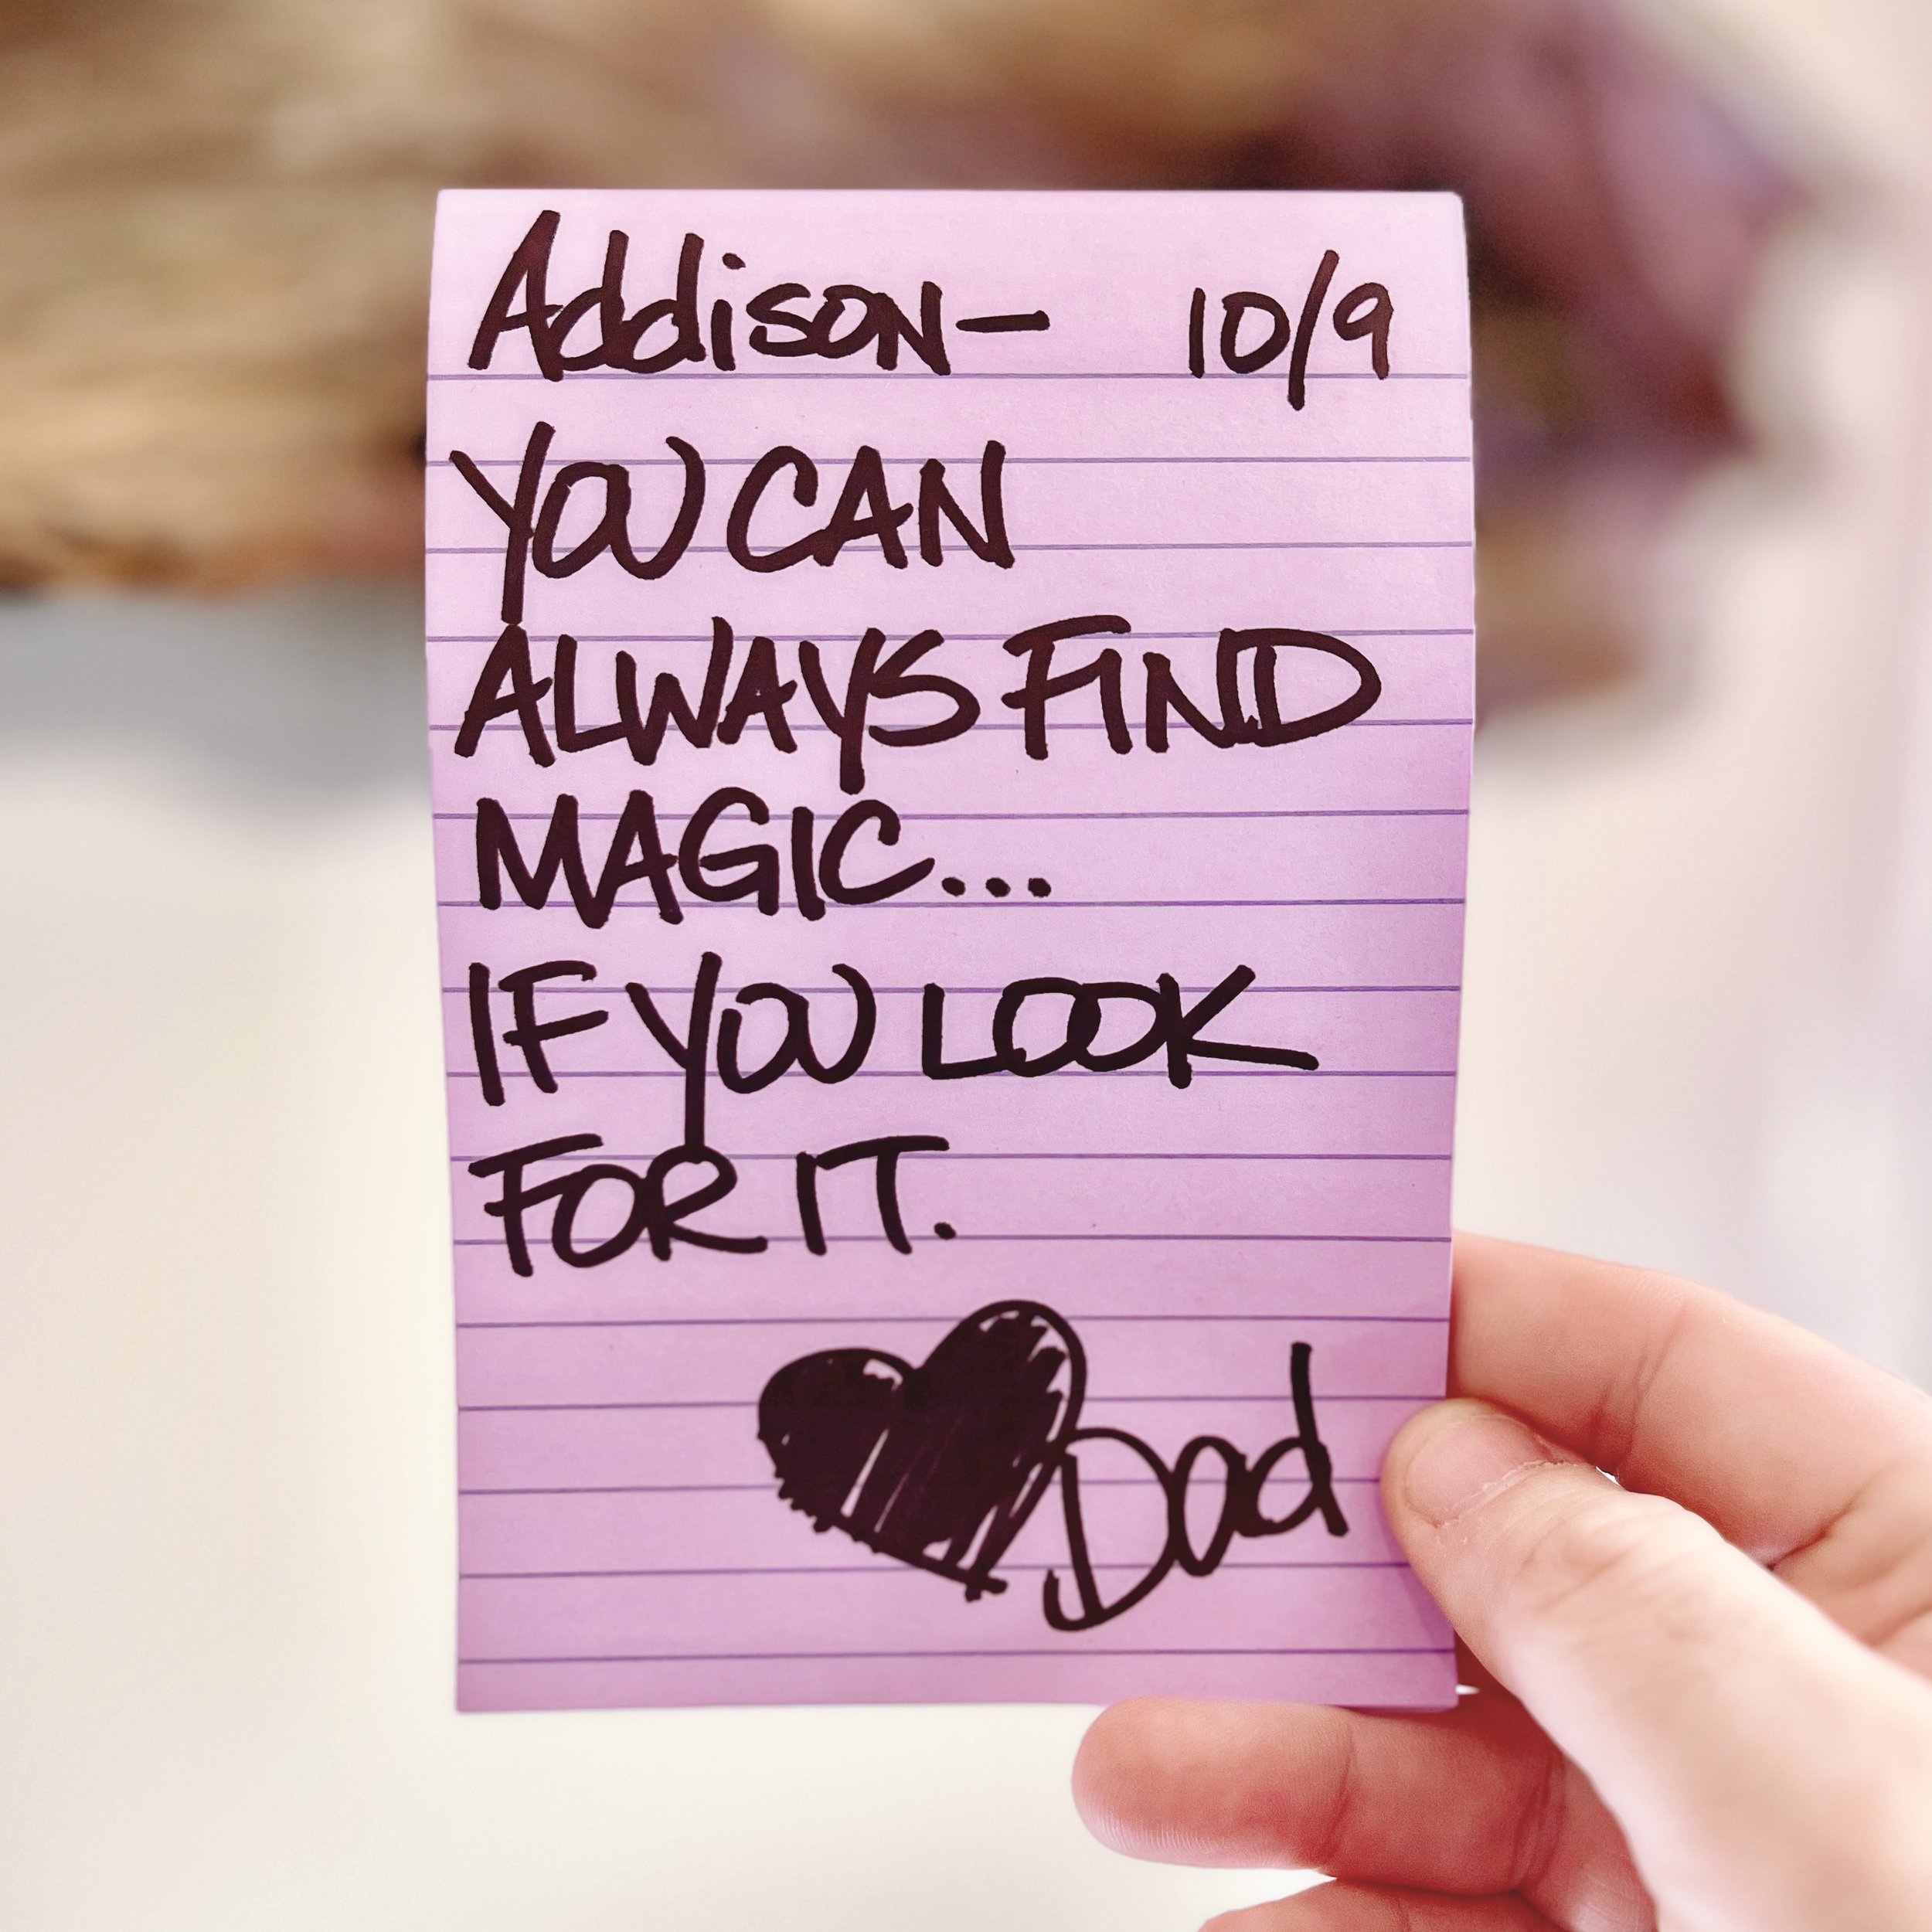 Addison— 10/9
YOU CAN
ALWAYS FIND
MAGIC...
IF YOU LOOK
FOR IT.
Dad